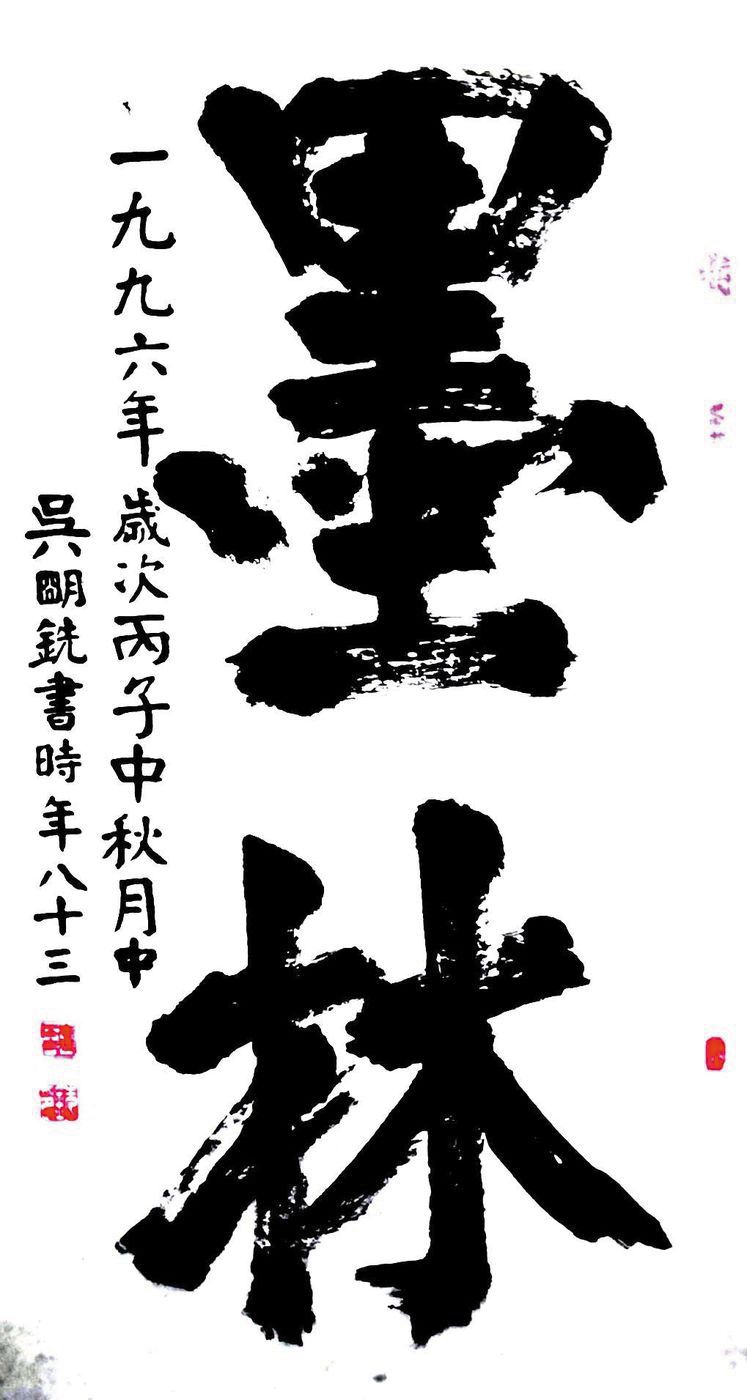 墨林
一九九六年歲次丙子中秋月中
吳明銑書時年八十三